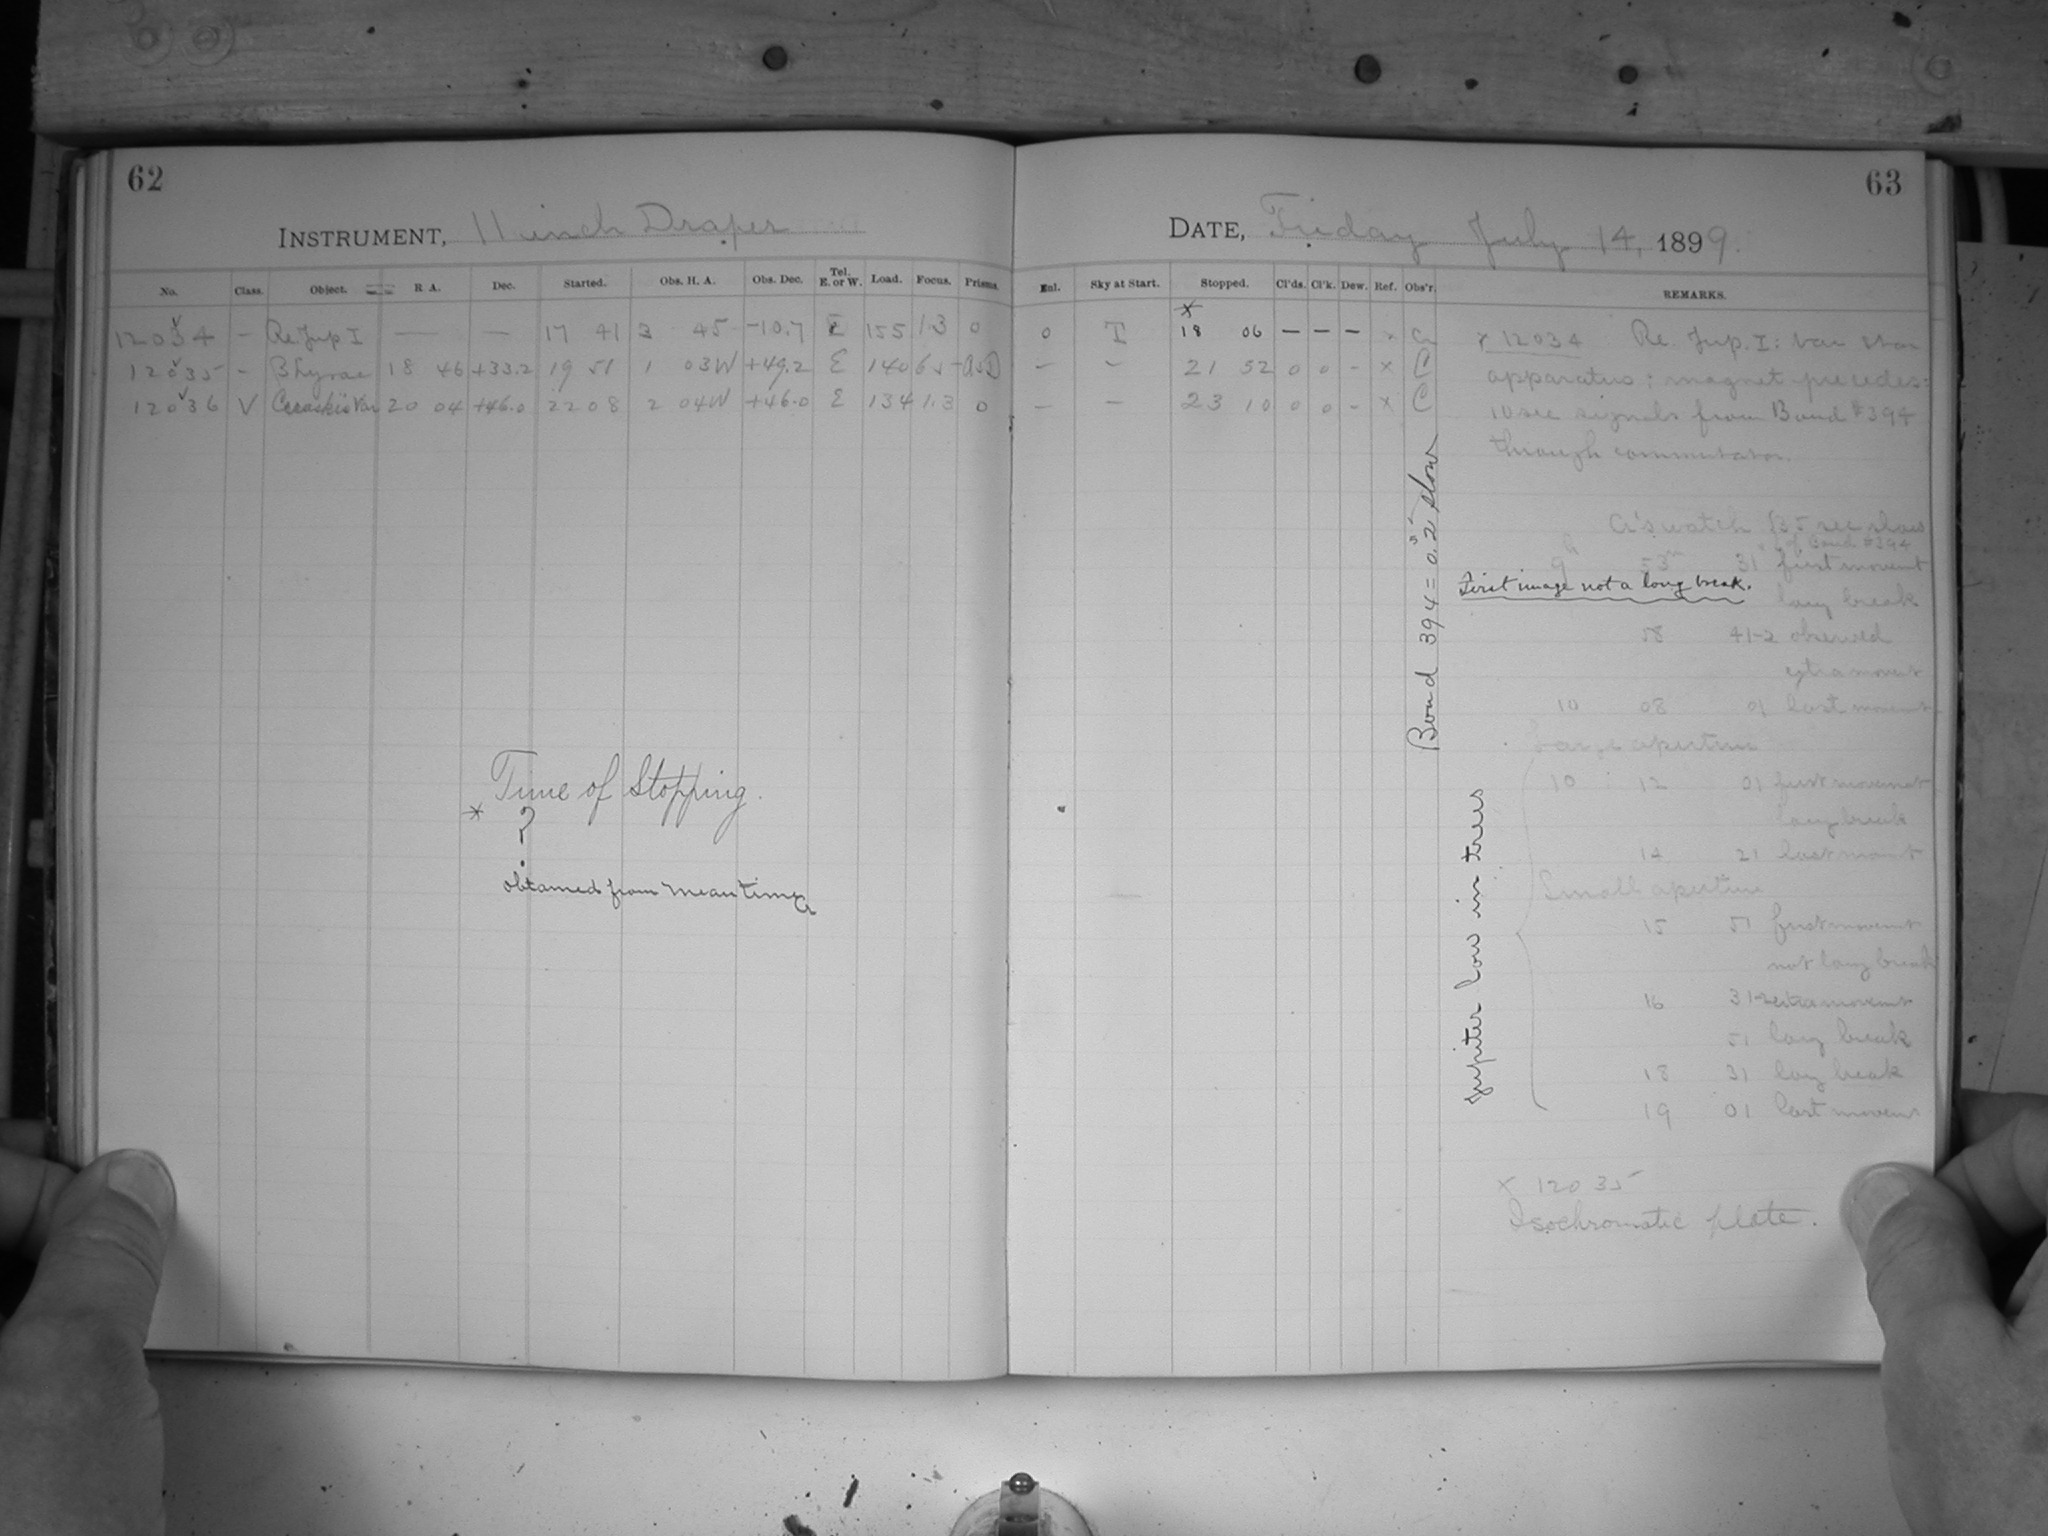 62
INSTRUMENT, 11 inch Draper
No. Class. Object. R A. Dec. Started. Obs. H. A. Obs. Dec. Tel. E. or W. Load. Focus. Prisms.
12034 – Re. Jup I — — 17 41 3 45 -10.7 E 155 1.3 0
12035 – β Lyrae 18 46 +33.2 19 51 1 03W +49.2 E 140
12036 V Ceraski's Var 20 04 +46.0 22 08 2 04W +46.0 E 134 1.3 0
Time of Stopping.
* ?
obtained from Mean time
63
DATE, Friday July 14, 1899.
Enl. Sky at Start. Stopped. Cl'ds. Cl'k. Dew. Ref. Obs'r. REMARKS.
*
0 T 18 06 – – – x
– – 21 52 0 0 – x C
– – 23 10 0 0 – x C
Bond 394 = 0.2s slow
Jupiter low in trees
x 12034 Re. Jup. I: var star
apparatus; magnet precedes:
10 sec signals from Bond #394
through commutator.
watch sec slow
of Bond #394
9h 53m 31s first movemt
First image not a long break.
long break
58 41-2 observed
extra movemt
10 08 01 last movemt
Large aperture
10 12 01 first movemnt
long break
14 21 last movmt
Small aperture
15 51 first movemt
not long break
16 31-2 extra movemnt
51 long break
18 31 long break
19 01 last movemt
x 12035
Isochromatic plate.